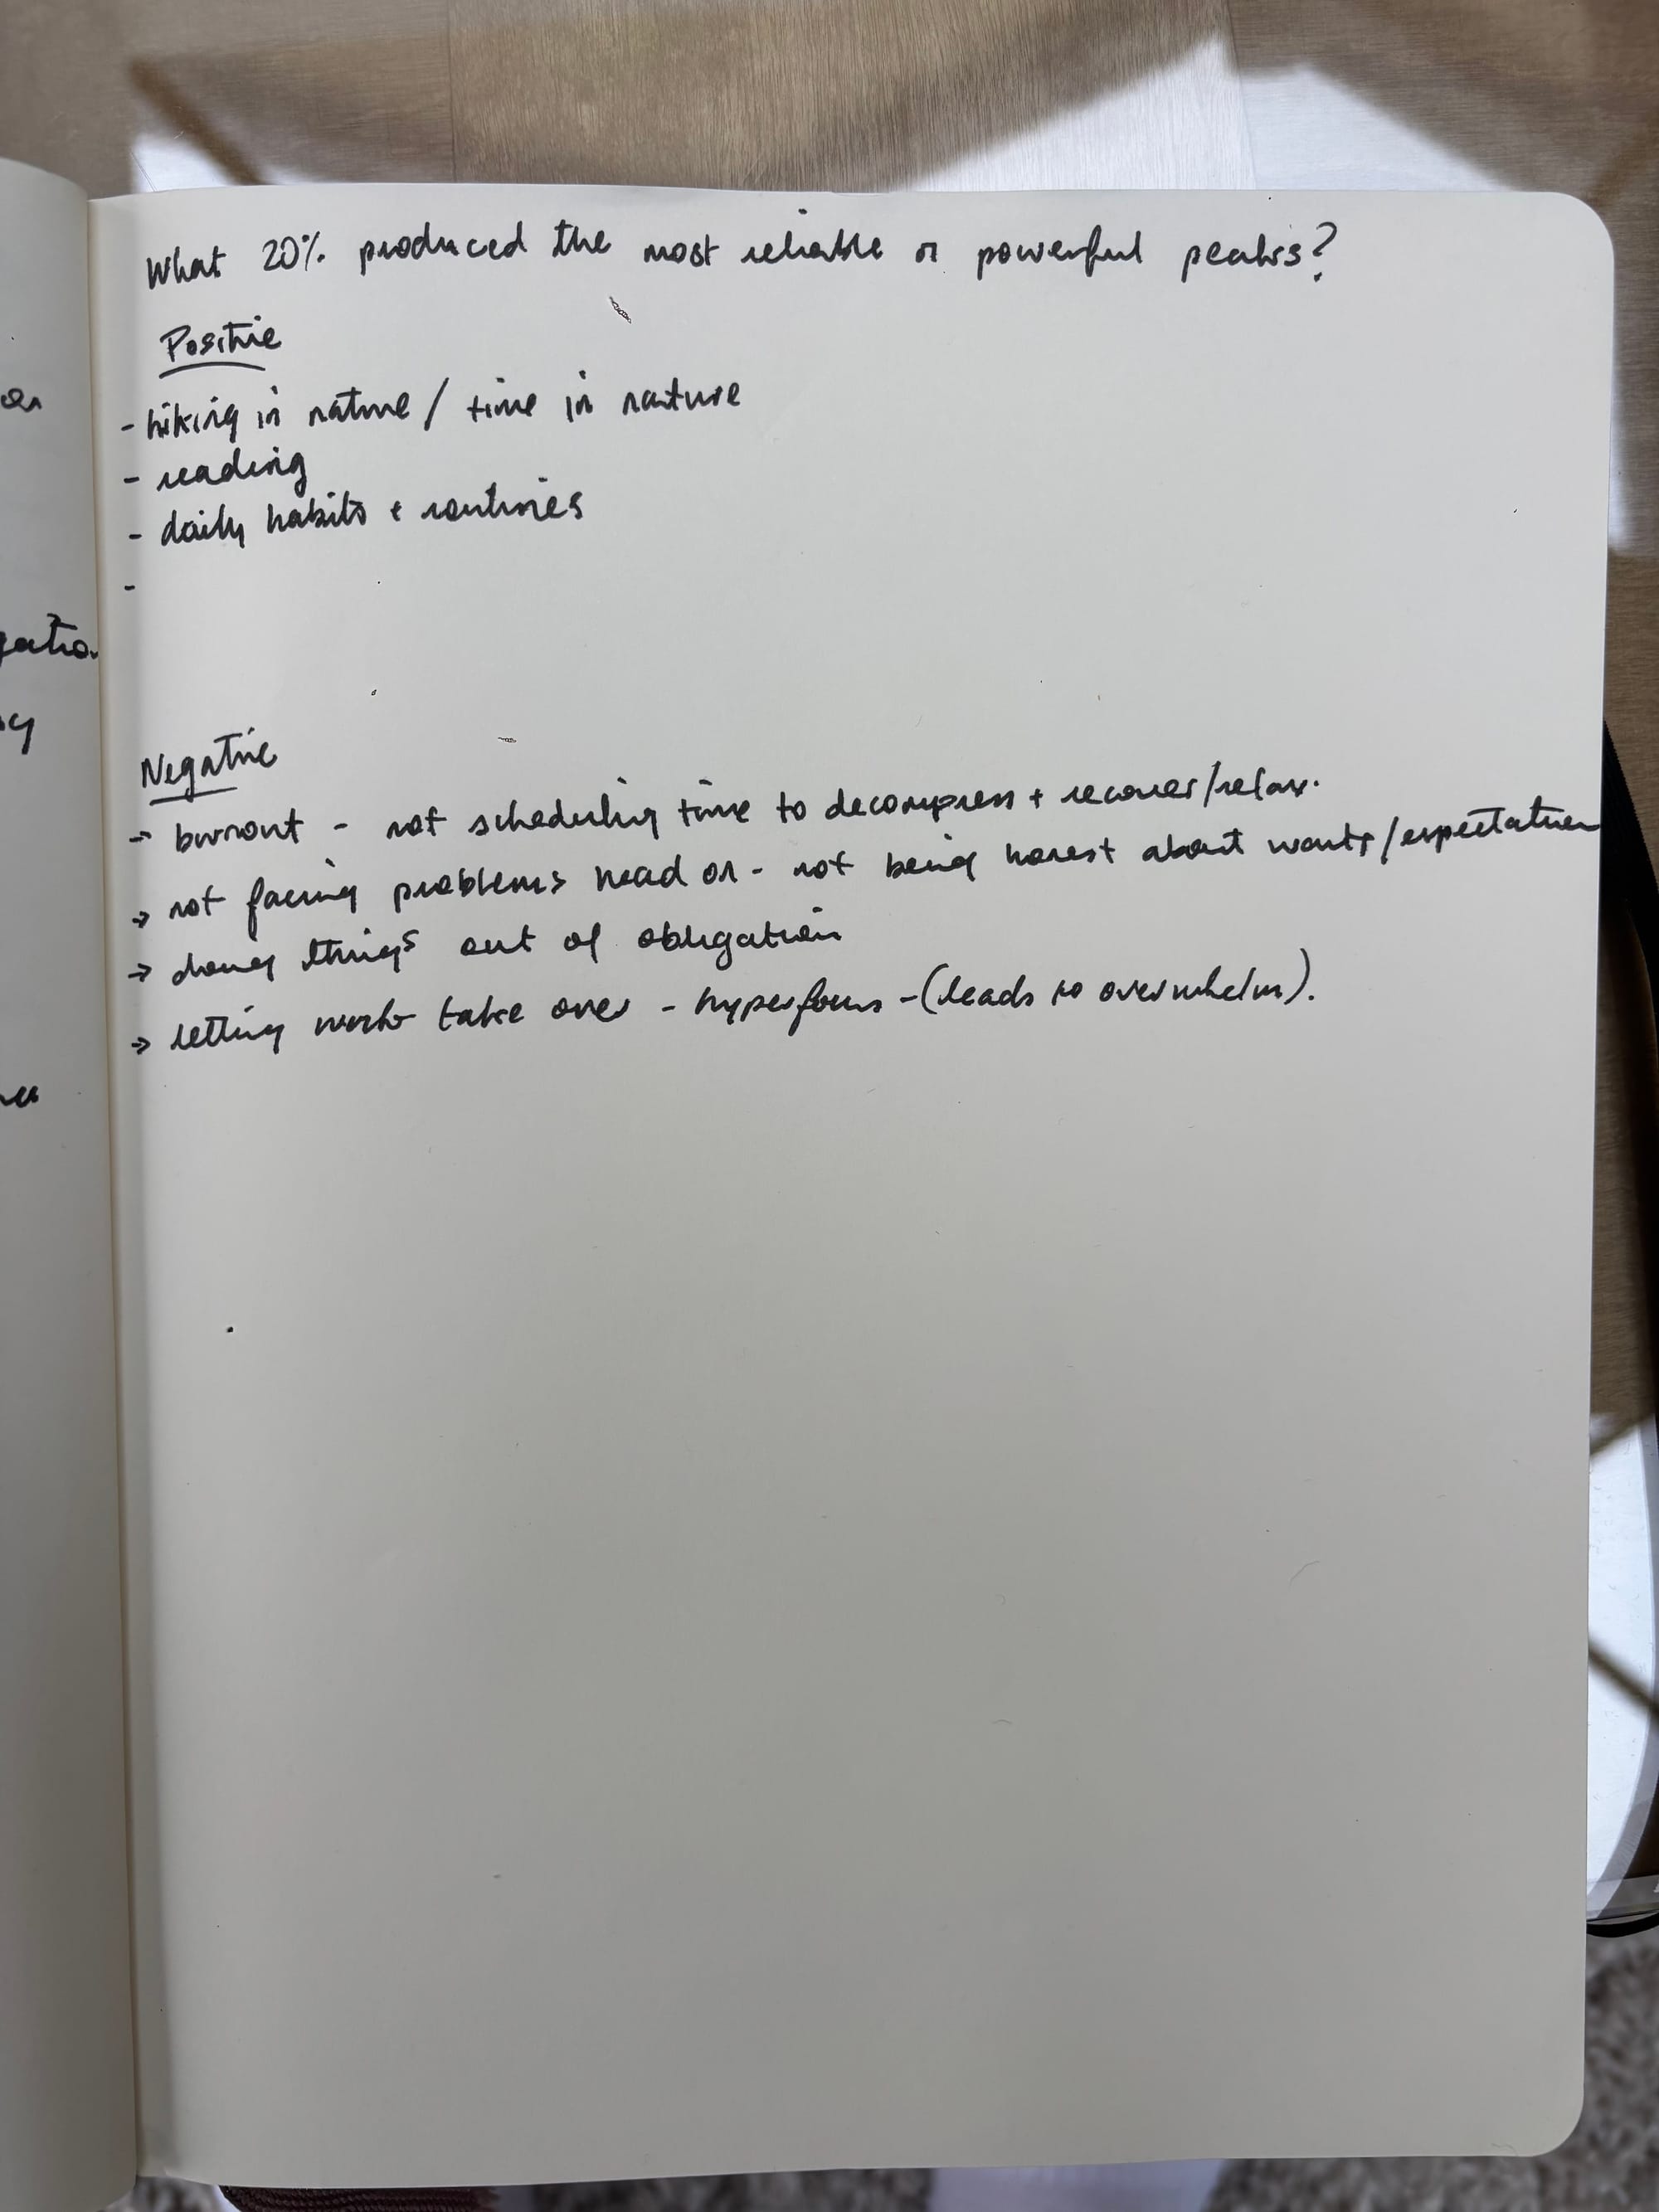 What 20% produced the most reliable or powerful peaks?
Positive
- hiking in nature / time in nature
- reading
- daily habits + routines
-
Negative
→ burnout - not scheduling time to decompress + recover/relax.
→ not facing problems head on - not being honest about wants/expectation
→ doing things out of obligation
→ letting work take over - hyperfocus - (leads to overwhelm).